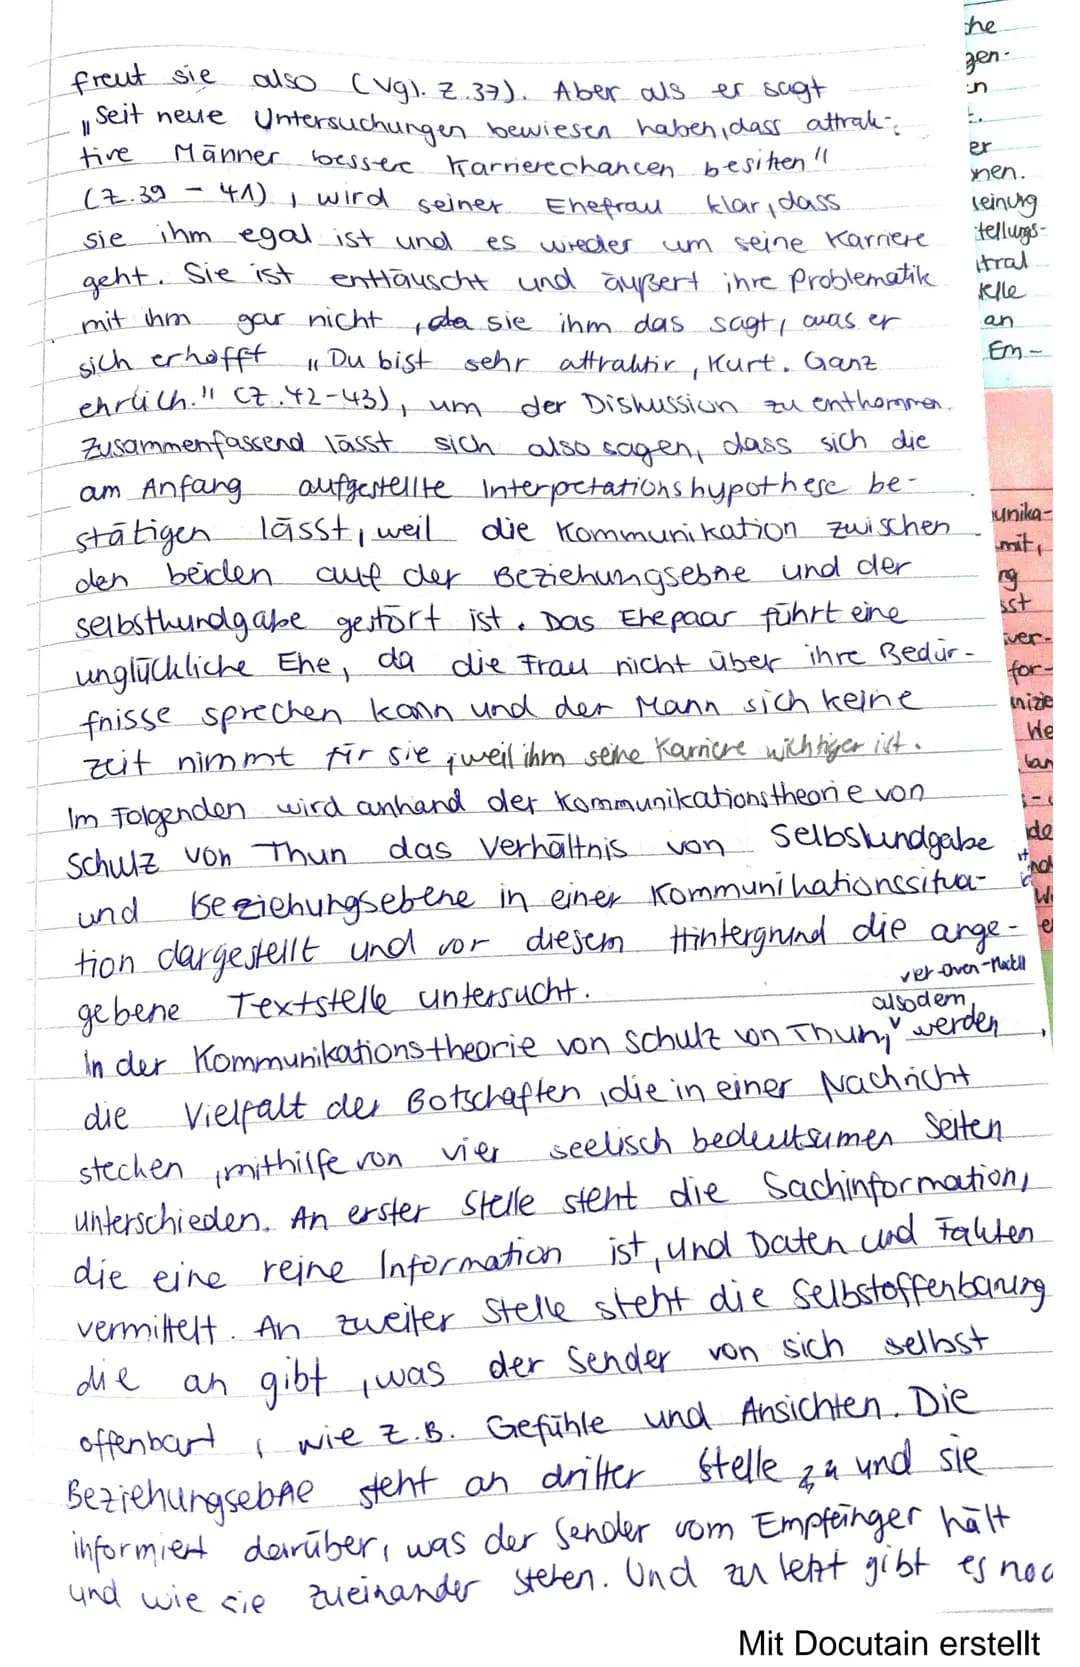 freut sie also (Vgl. Z.37). Aber als er sagt
„Seit neue Untersuchungen bewiesen haben, dass attrak-
tive Männer bessere Karrierechancen besitzen"
(Z.39 - 41), wird seiner Ehefrau klar, dass
sie ihm egal ist und es wieder um seine Karriere
geht. Sie ist enttäuscht und äußert ihre Problematik
mit ihm gar nicht, da sie ihm das sagt, was er
sich erhofft „Du bist sehr attraktiv, Kurt. Ganz
ehrlich." (Z.42-43), um der Diskussion zu entkommen.
Zusammenfassend lässt sich also sagen, dass sich die
am Anfang aufgestellte Interpretationshypothese be-
stätigen lässt, weil die Kommunikation zwischen
den beiden auf der Beziehungsebne und der
selbstkundgabe gestört ist. Das Ehepaar führt eine
unglückliche Ehe, da die Frau nicht über ihre Bedür-
fnisse sprechen kann und der Mann sich keine
zeit nimmt für sie, weil ihm seine Karriere wichtiger ist.
Im Folgenden wird anhand der Kommunikationstheorie von
Schulz von Thun das Verhältnis von Selbstkundgabe
und Beziehungsebene in einer Kommunikationssitua-
tion dargestellt und vor diesem Hintergrund die ange-
gebene Textstelle untersucht.
also dem,
In der Kommunikationstheorie von Schulz von Thun, werden
die Vielfalt der Botschaften, die in einer Nachricht
stecken, mithilfe von vier seelisch bedeutsamen Seiten
unterschieden. An erster Stelle steht die Sachinformation,
die eine reine Information ist, und Daten und Fakten
vermittelt. An zweiter Stelle steht die Selbstoffenbarung
die an gibt, was der Sender von sich selbst
offenbart, wie z.B. Gefühle und Ansichten. Die
Beziehungsebne steht an dritter Stelle und sie
informiert darüber, was der Sender vom Empfänger hält
und wie sie zueinander stehen. Und zu letzt gibt es noc
che
gen-
en
t.
er
nen.
einung
tellungs-
tral
elle
an
Em-
unika-
mit,
ng
sst
ver-
for-
nizie
We
Mit Docutain erstellt